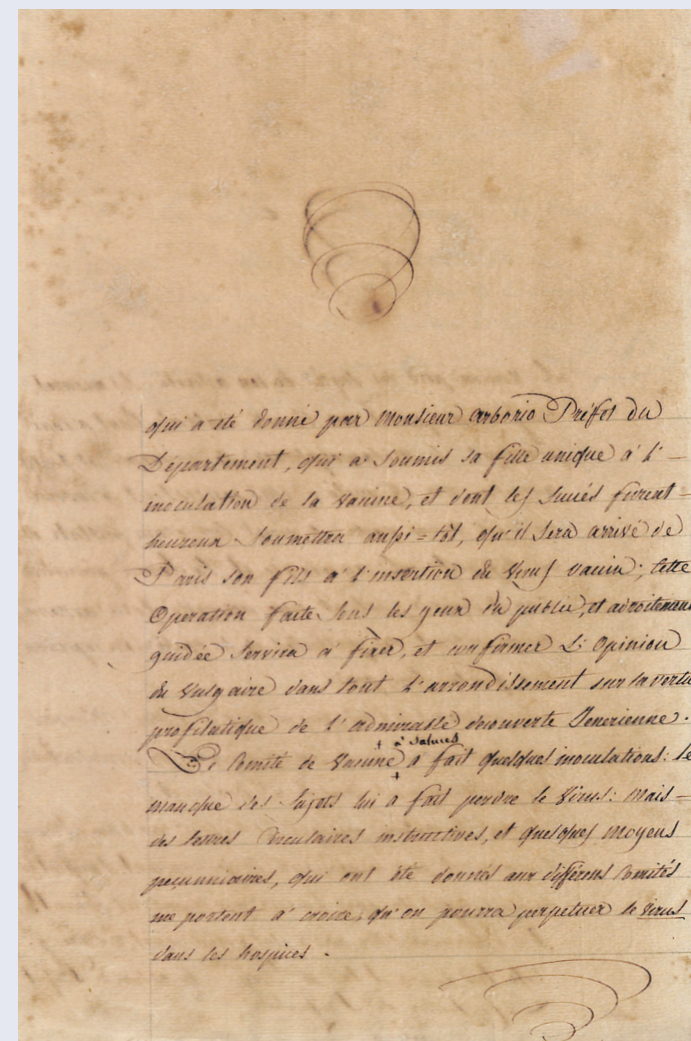 qui a été donné par Monsieur arborio Préfet du
Département, qui a soumis sa fille unique à l'-
inoculation de la vaccine, et dont les succés furent=
heureux soumettra aussi=tôt, qu'il sera arrivé de
Paris son fils à l'insertion du virus vaccin; Cette
Operation faite sous les yeux du public, et adroitement
guidée servira à fixer, et confirmer L'Opinion
du vulgaire dans tout l'arrondissement sur la vertu
profilatique de l'admirable decouverte Jenerienne.
+ à Saluces
Le Comité de Vaccine + a fait quelques inoculations: le
manque des sujets lui a fait perdre le virus: mais=
des lettres Circulaires instructives, et quelques moyens
pecunniaires, qui ont été donnés aux differens Comités
me portent à croire, qu'on pourra perpetuer le virus
dans les hospices.